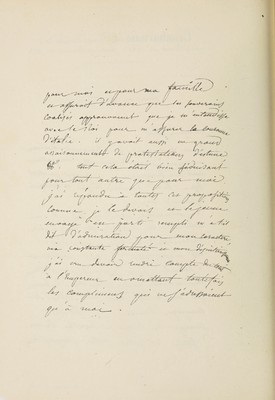 pour moi et pour ma famille
m'assurait d'avance que les souverains
coalisés approuveraient que je m'entendisse
avec le Roi pour m'assurer la couronne
d'Italie. il y avait aussi un grand
assaisonnement de gratifications d'estime
tout cela était bien séduisant
pour tout autre que pour moi
j'ai répondu à toutes ces propositions
comme je le devais et le jeune
envoyé est parti rempli m'a-t-il
dit d'admiration pour mon caractère
ma constante fermeté et mon désintéressement
j'ai cru devoir rendre compte de tout
à l'Empereur en omettant toutefois
les compliments qui ne s'adressaient
qu'à moi.